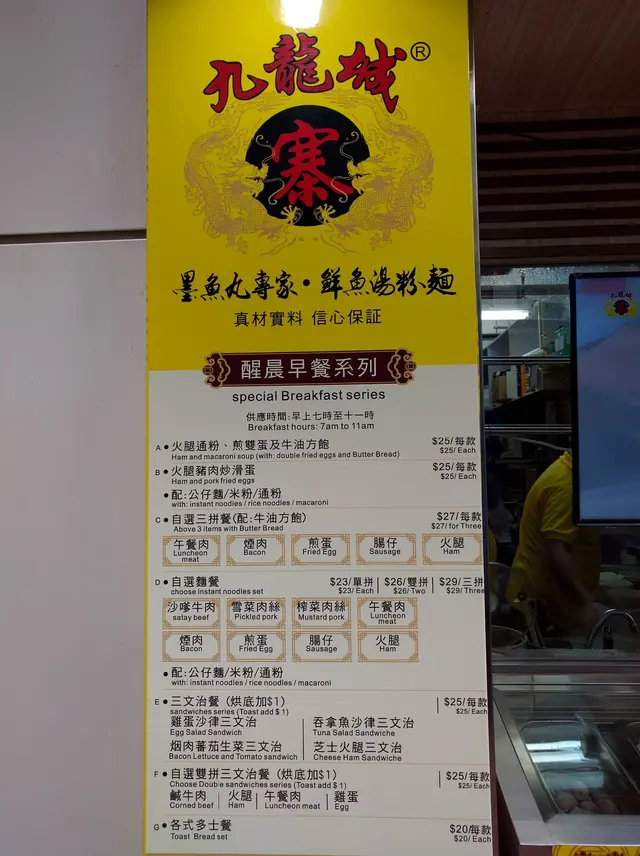 九龍城®
寨
墨魚丸專家・鮮魚湯粉麵
真材實料 信心保証
醒晨早餐系列
special Breakfast series
供應時間:早上七時至十一時
Breakfast hours: 7am to 11am
A ● 火腿通粉、煎雙蛋及牛油方飽 $25/每款
Ham and macaroni soup (with: double fried eggs and Butter Bread) $25/ Each
B ● 火腿豬肉炒滑蛋 $25/每款
Ham and pork fried eggs $25/ Each
● 配:公仔麵/米粉/通粉
with: instant noodles / rice noodles / macaroni
C ● 自選三拼餐(配:牛油方飽) $27/每款
Above 3 items with Butter Bread $27/ for Three
午餐肉 煙肉 煎蛋 腸仔 火腿
Luncheon meat Bacon Fried Egg Sausage Ham
D ● 自選麵餐 $23/單拼 $26/雙拼 $29/三拼
choose instant noodles set $23/ Each $26/ Two $29/ Three
沙嗲牛肉 雪菜肉絲 榨菜肉絲 午餐肉
satay beef Pickled pork Mustard pork Luncheon meat
煙肉 煎蛋 腸仔 火腿
Bacon Fried Egg Sausage Ham
● 配:公仔麵/米粉/通粉
with: instant noodles / rice noodles / macaroni
E ● 三文治餐 (烘底加$1) $25/每款
sandwiches series (Toast add $ 1) $25/ Each
雞蛋沙律三文治 吞拿魚沙律三文治
Egg Salad Sandwich Tuna Salad Sandwiche
烟肉蕃茄生菜三文治 芝士火腿三文治
Bacon Lettuce and Tomato sandwich Cheese Ham Sandwiche
F ● 自選雙拼三文治餐 (烘底加$1) $25/每款
Choose Double sandwiches series (Toast add $ 1) $25/ Each
鹹牛肉 火腿 午餐肉 雞蛋
Corned beef Ham Luncheon meat Egg
G ● 各式多士餐 $20/每款
Toast Bread set $20/ Each
九龍城
寨